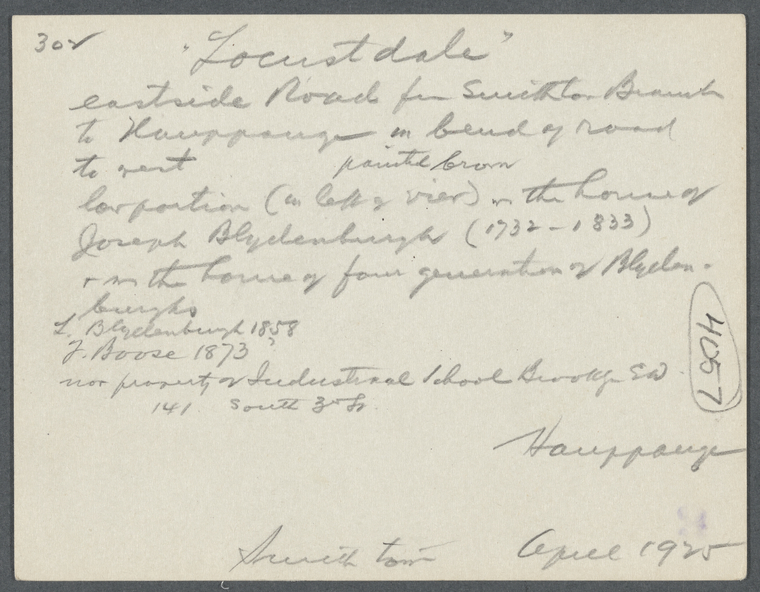 302
"Locustdale"
eastside Road fr Smithtn Branch
to Hauppauge in bend of road
to west painted brown
low portion (in left of view) was the house of
Joseph Blydenburgh (1732 - 1833)
+ was the home of four generation of Blyden-
burghs
L. Blydenburgh 1858
J. Boose 1873 ?
now property of Industrial School Brooklyn E.D.
141 South 3rd St.
4057
Hauppauge
Smithtown April 1925